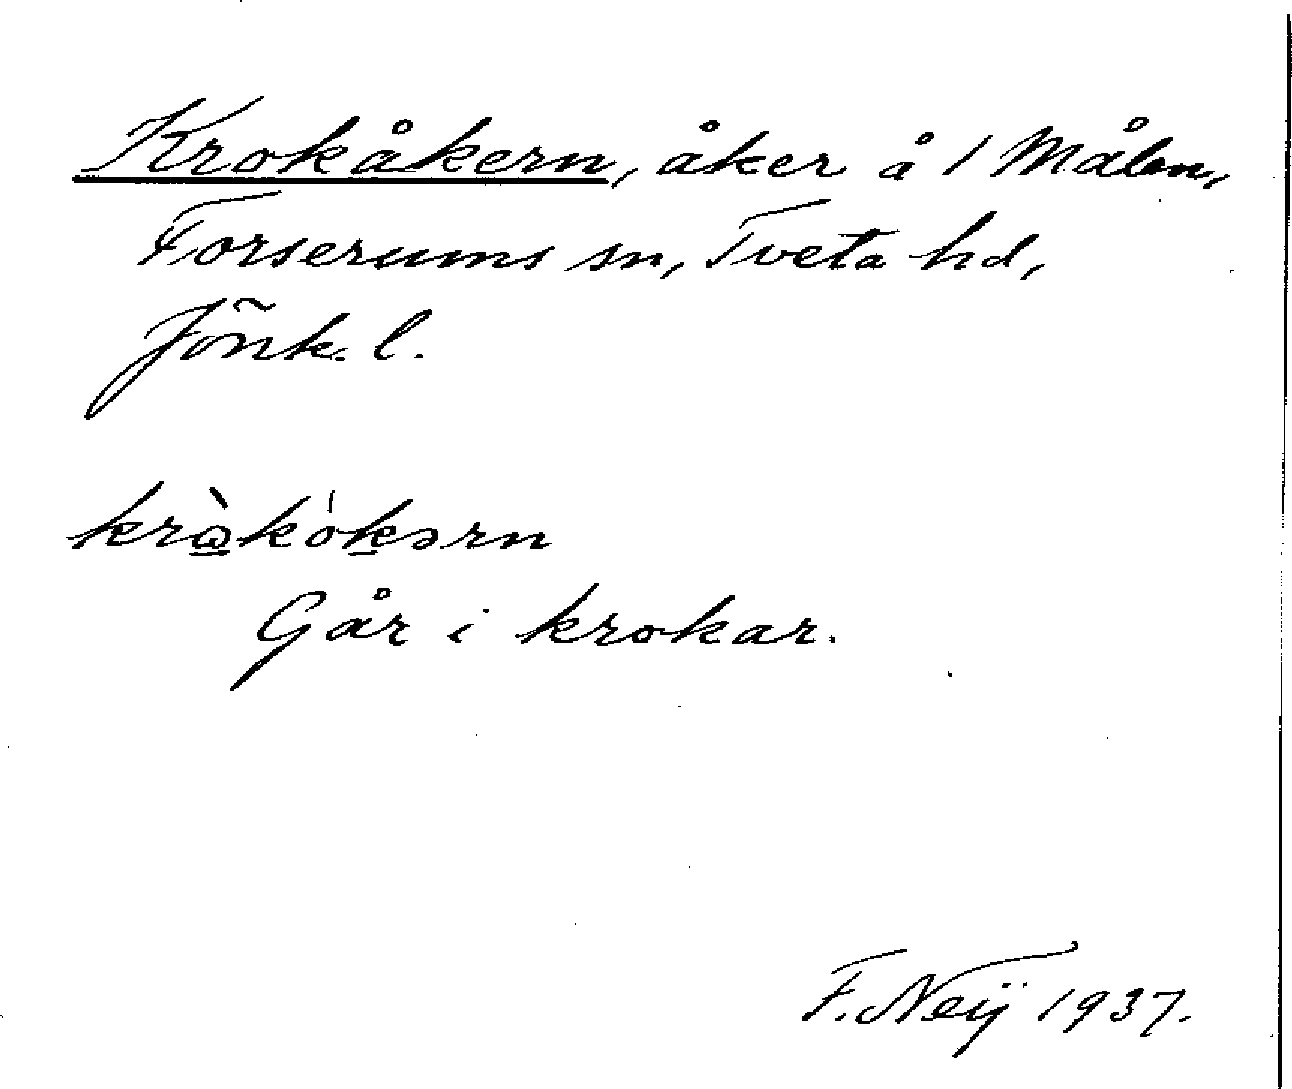 Krokåkern, åker å 1 Målen,
Forserums sn, Tveta hd,
Jönk. l.
krὼ̲kók̲ərn
Går i krokar.
F. Neij 1937.